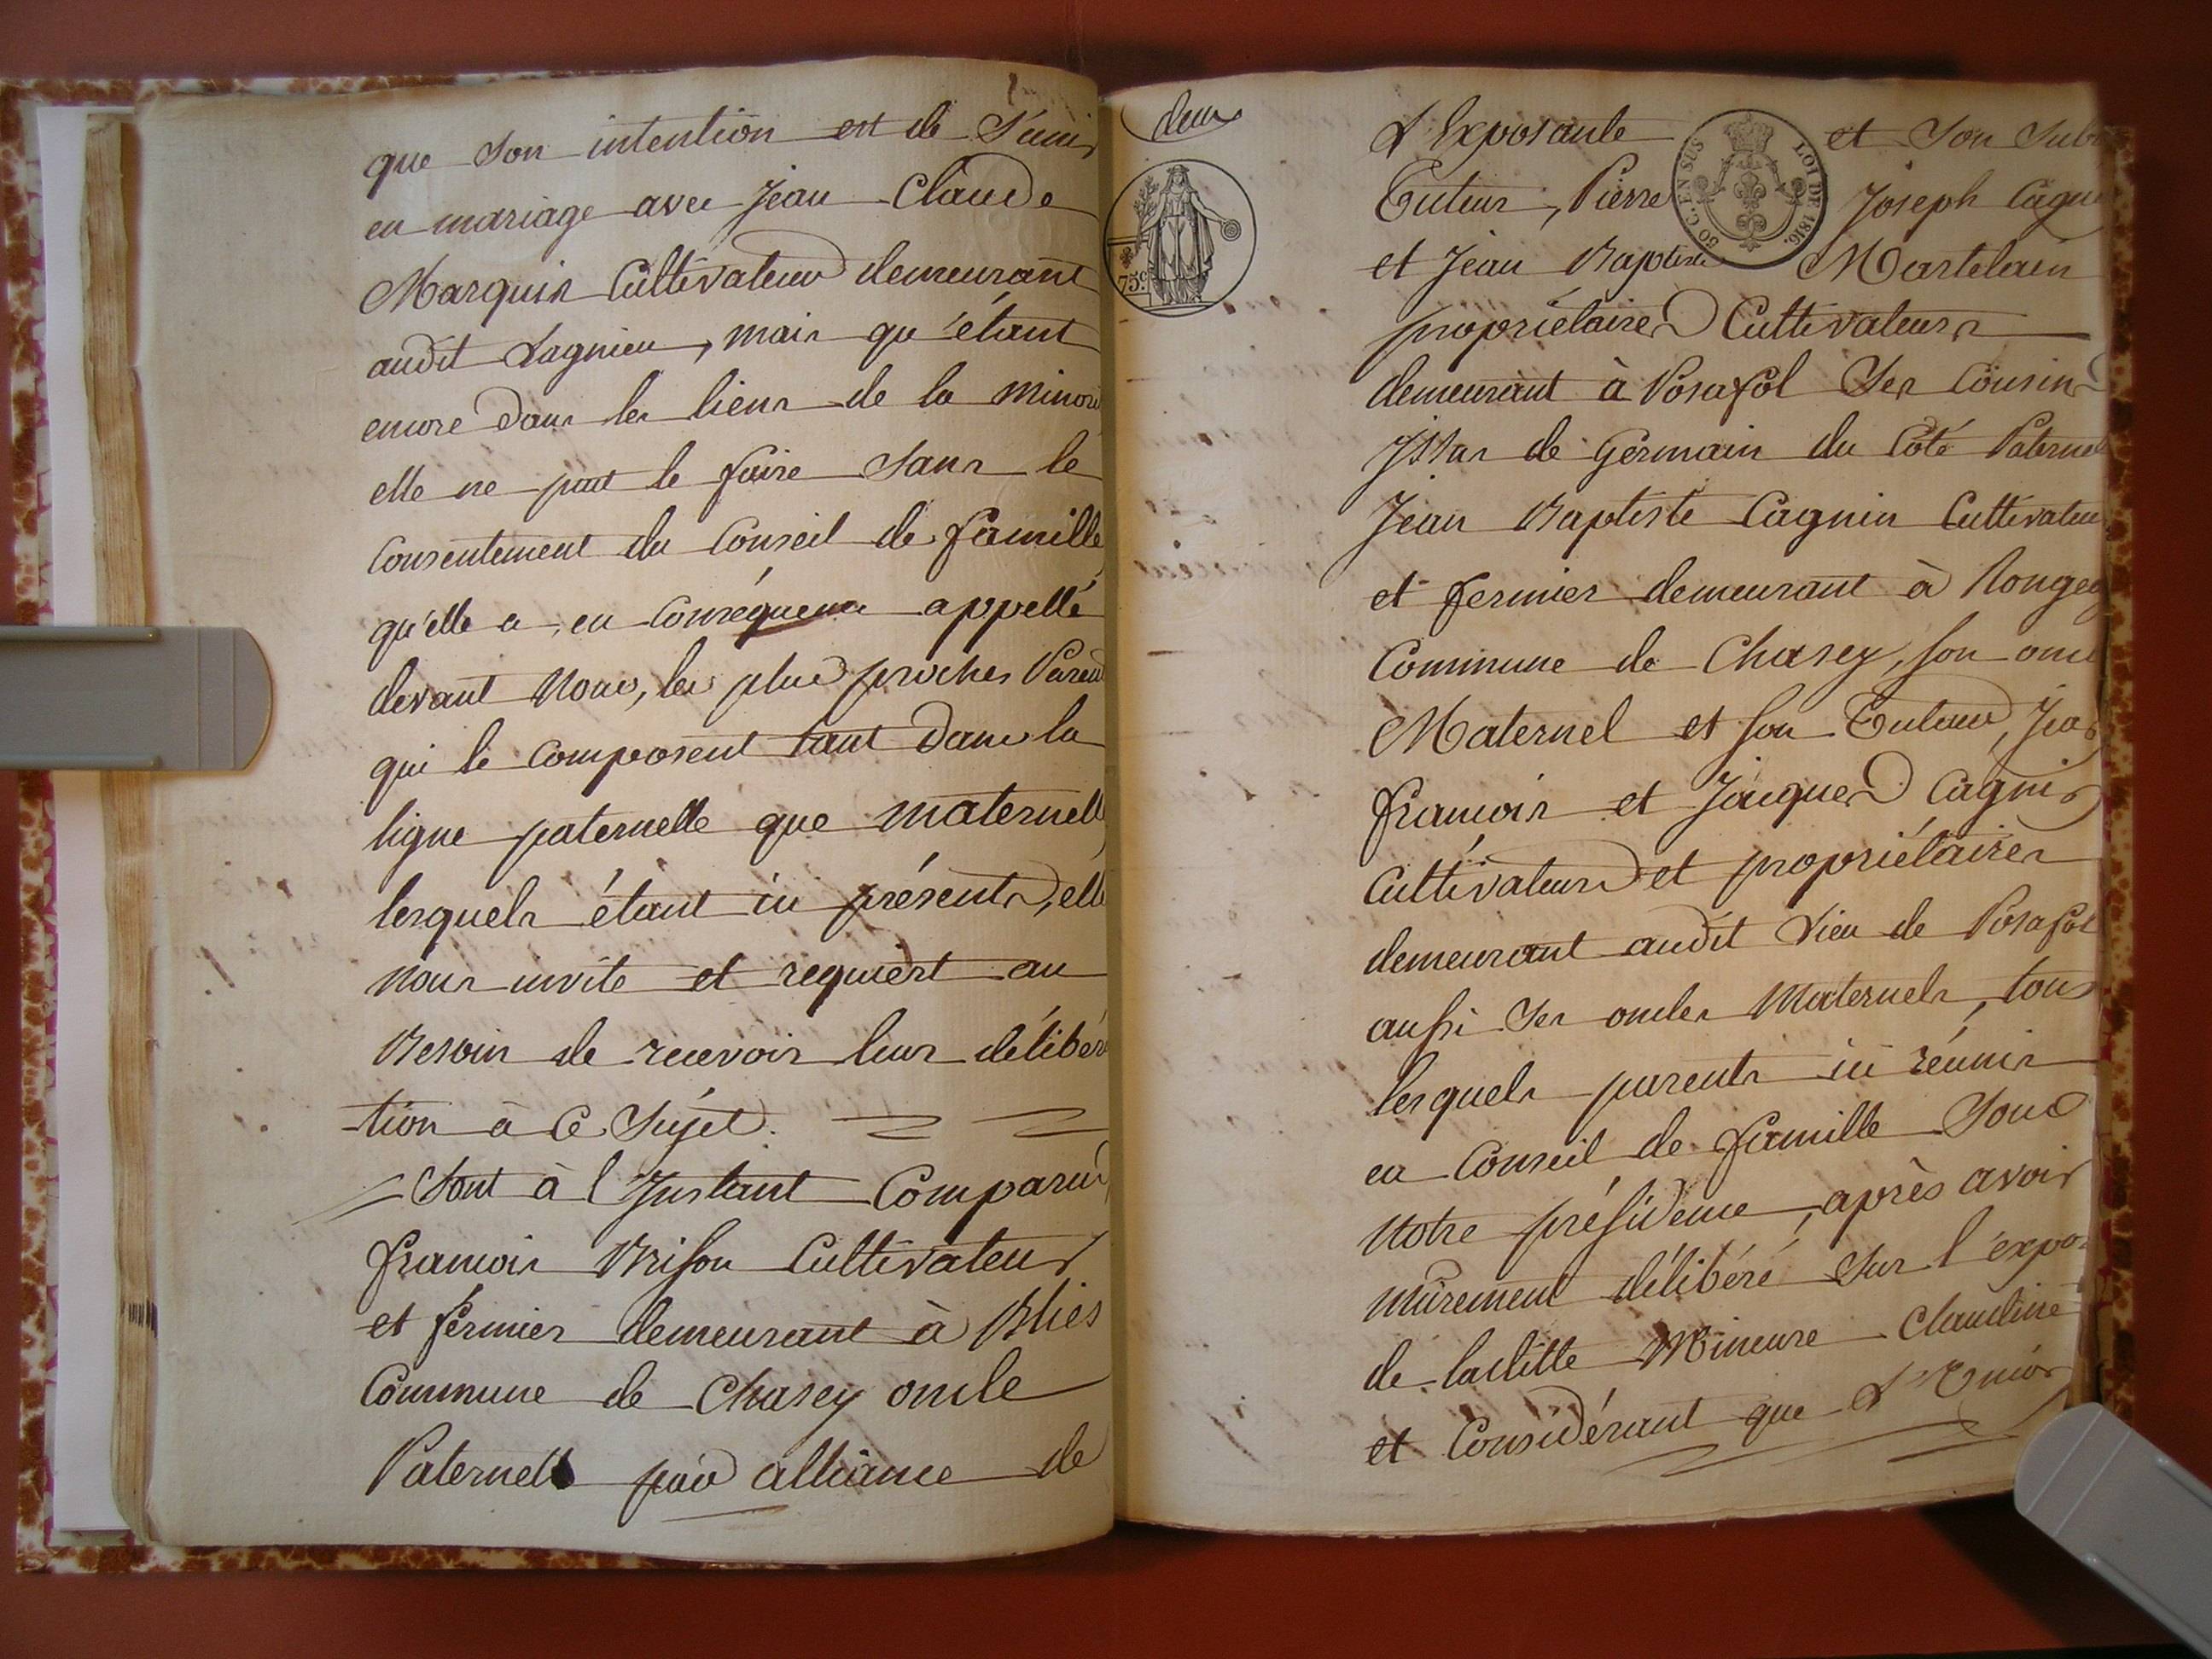 que Son intention est de S'unir
en mariage avec Jean Claude
Marquis Cultivateur demeurant
audit Lagnieu, mais qu'étant
encore dans les liens de la minori
elle ne peut le faire Sans le
Consentement du Conseil de famille
qu'elle a, en Conséquence appellé
devant Nous, les plus proches Parens
qui le Composent tant dans la
ligne paternelle que maternelle
lesquels étant ici présents, elle
nous invite et requiert au
Besoin de recevoir leur délibéra
tion à Ce Sujet.
Sont à l'Instant Comparus
françois Brison Cultivateur
et fermier demeurant à Blies
Commune de Chasey oncle
Paternel par alliance de
deux
75c.
L'Exposante et Son Subr
50 C. EN SUS LOI DE 1816.
Tuteur, Pierre Joseph Cagn
et Jean Baptiste Martelain
propriétaires Cultivateurs
demeurant à Posafol Ses Cousins
Issus de Germain du Côté Paternel
Jean Baptiste Cagnin Cultivateu
et fermier demeurant à
Commune de Chasey, son oncle
Maternel et son Tuteur,
françois et Jacques Cagnin
Cultivateurs et propriétaires
demeurant audit Lieu de Posafol
aussi Ses oncles Maternels, tous
lesquels parents ici réunis
en Conseil de famille Sous
Notre présidence, après avoir
mûrement délibéré Sur l'expo
de laditte Mineure Claudine
et Considérant que L'Union